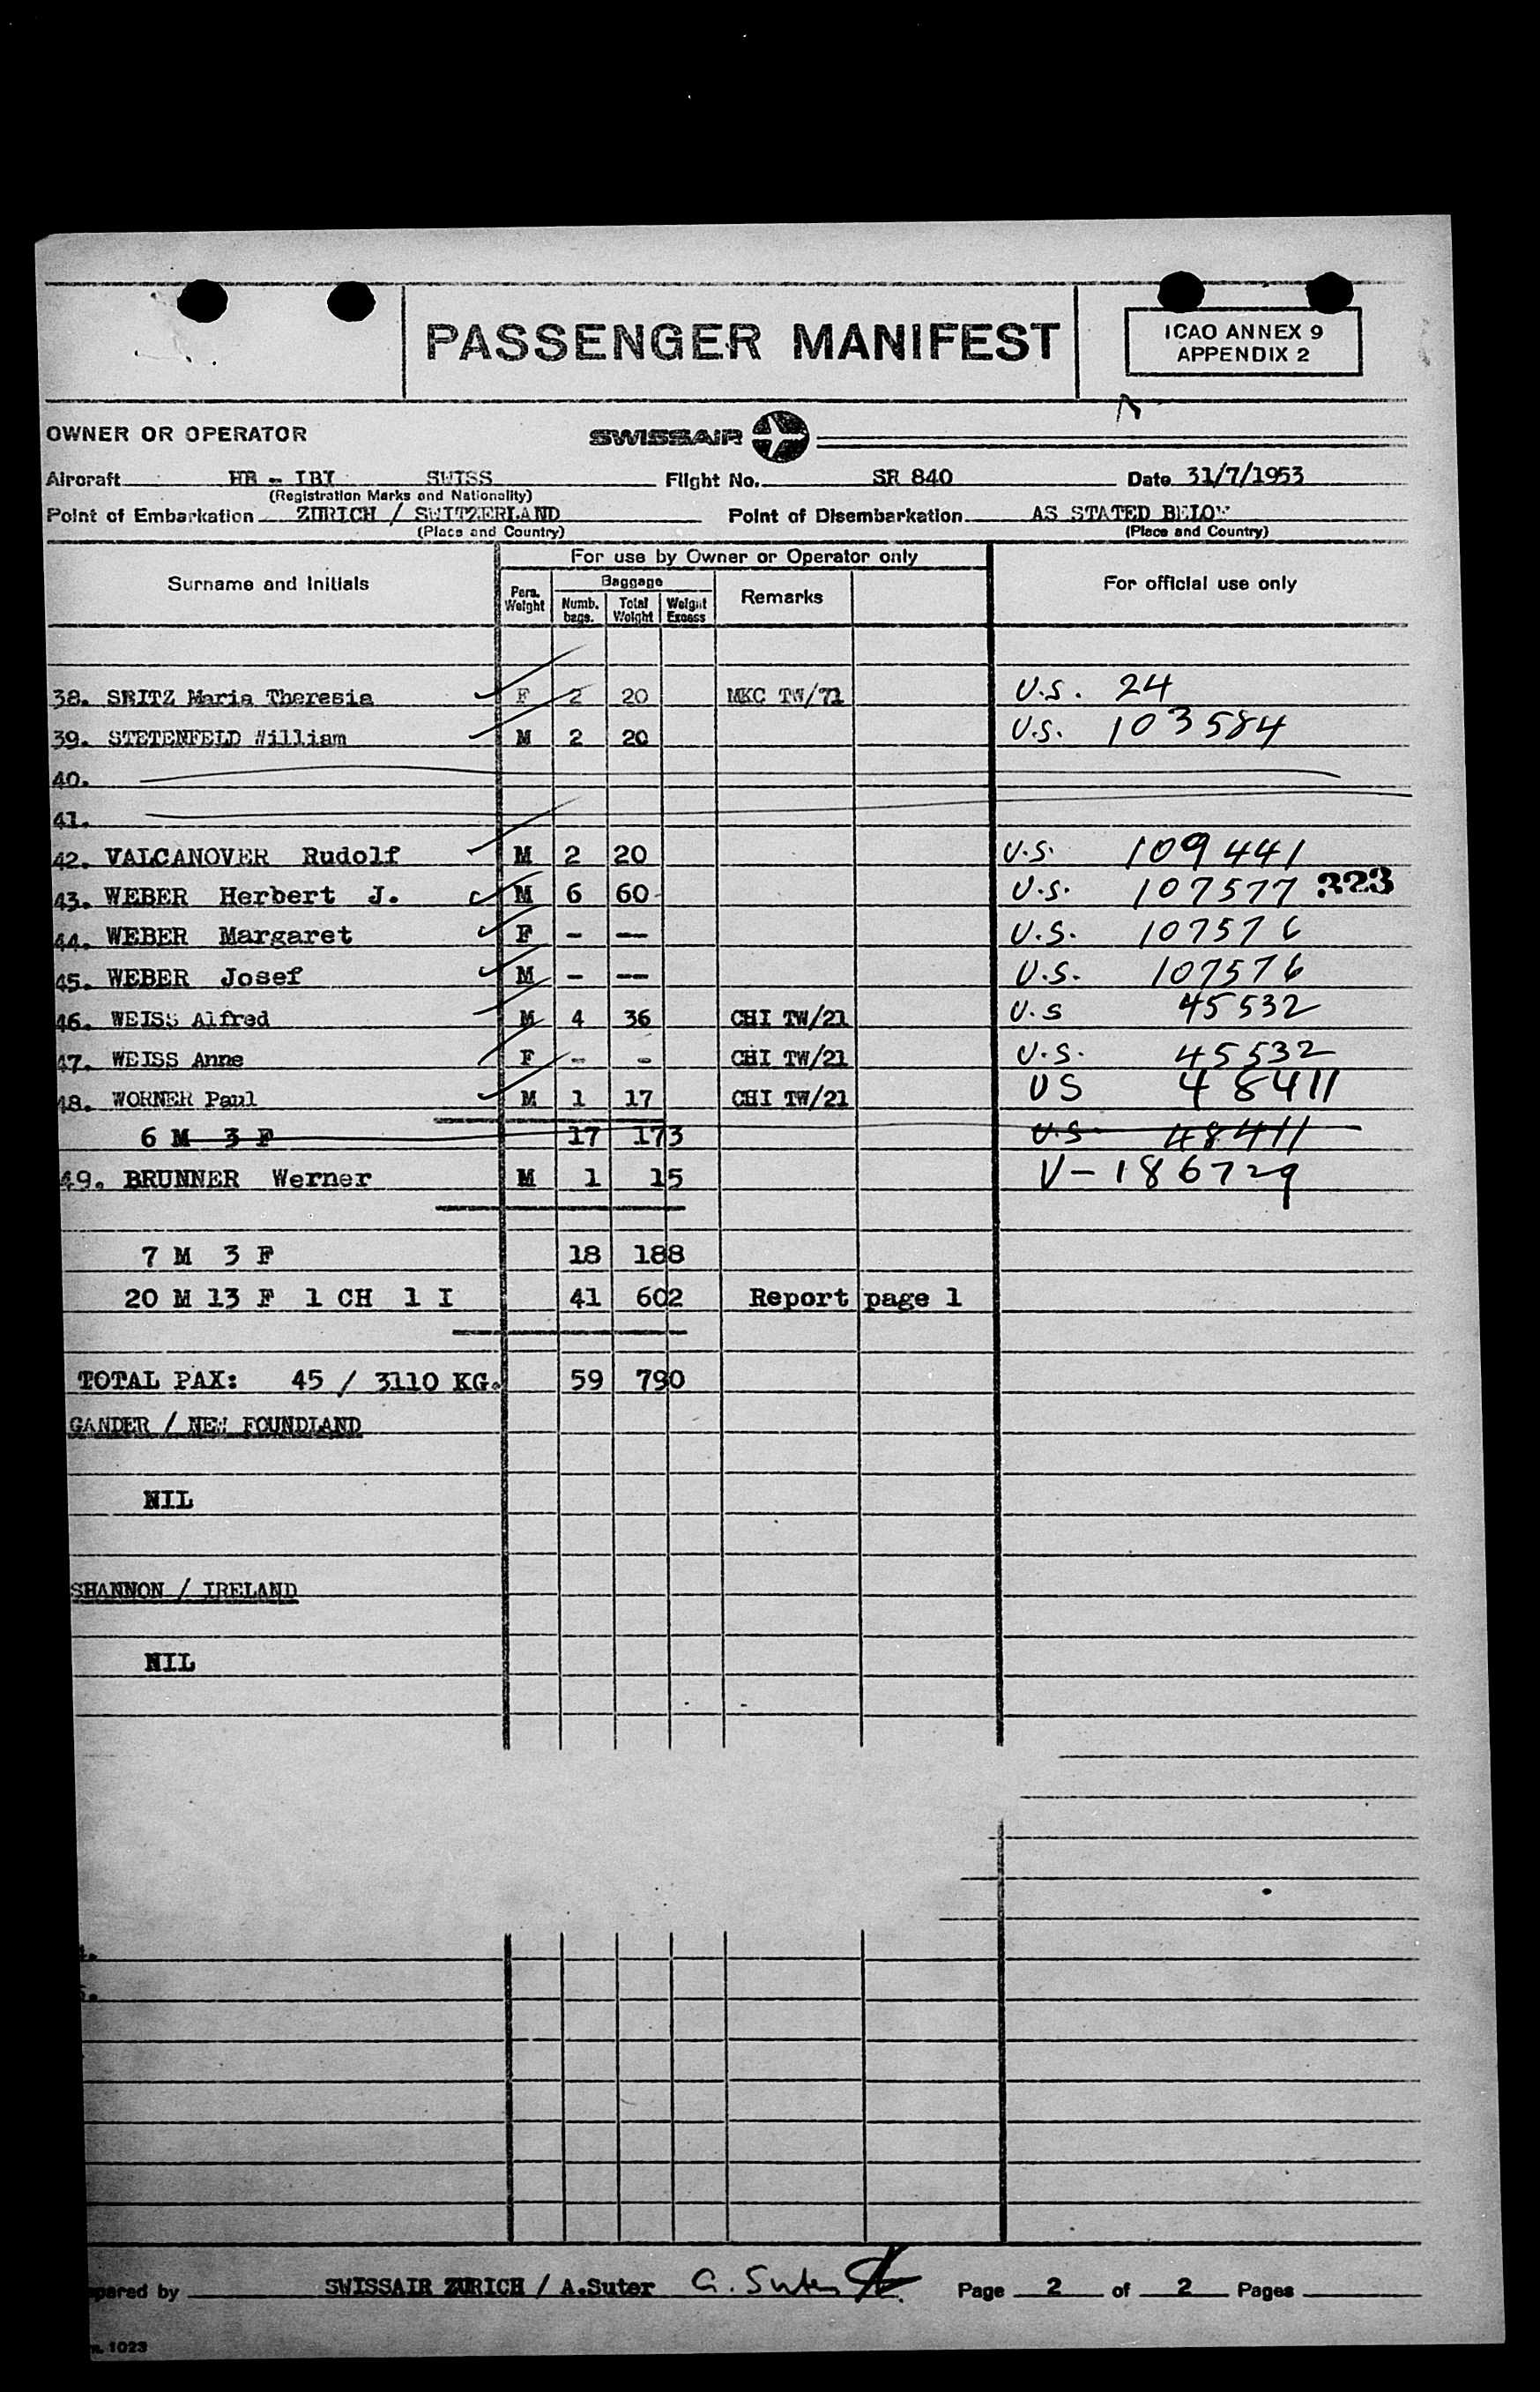 PASSENGER MANIFEST
ICAO ANNEX 9
APPENDIX 2
OWNER OR OPERATOR SWISSAIR
Aircraft HB - IBI SWISS Flight No. SR 840 Date 31/7/1953
(Registration Marks and Nationality)
Point of Embarkation ZURICH / SWITZERLAND Point of Disembarkation AS STATED BELOW
(Place and Country) (Place and Country)
For use by Owner or Operator only
Surname and Initials Pers. Weight Baggage Numb. bags. Total Weight Weight Excess Remarks For official use only
38. SEITZ Maria Theresia F 2 20 MKC TW/71 U.S. 24
39. STETENFELD William M 2 20 U.S. 103584
40.
41.
42. VALCANOVER Rudolf M 2 20 U.S. 109441
43. WEBER Herbert J. M 6 60 U.S. 107577 323
44. WEBER Margaret F - -- U.S. 107576
45. WEBER Josef M - -- U.S. 107576
46. WEISS Alfred M 4 36 CHI TW/21 U.S 45532
47. WEISS Anne F - - CHI TW/21 U.S. 45532
48. WORNER Paul M 1 17 CHI TW/21 US 48411
6 M 3 F 17 173 U.S 48411
49. BRUNNER Werner M 1 15 V-186729
7 M 3 F 18 188
20 M 13 F 1 CH 1 I 41 602 Report page 1
TOTAL PAX: 45 / 3110 KG. 59 790
GANDER / NEW FOUNDLAND
NIL
SHANNON / IRELAND
NIL
pared by SWISSAIR ZURICH / A.Suter G. Suter Page 2 of 2 Pages
1023